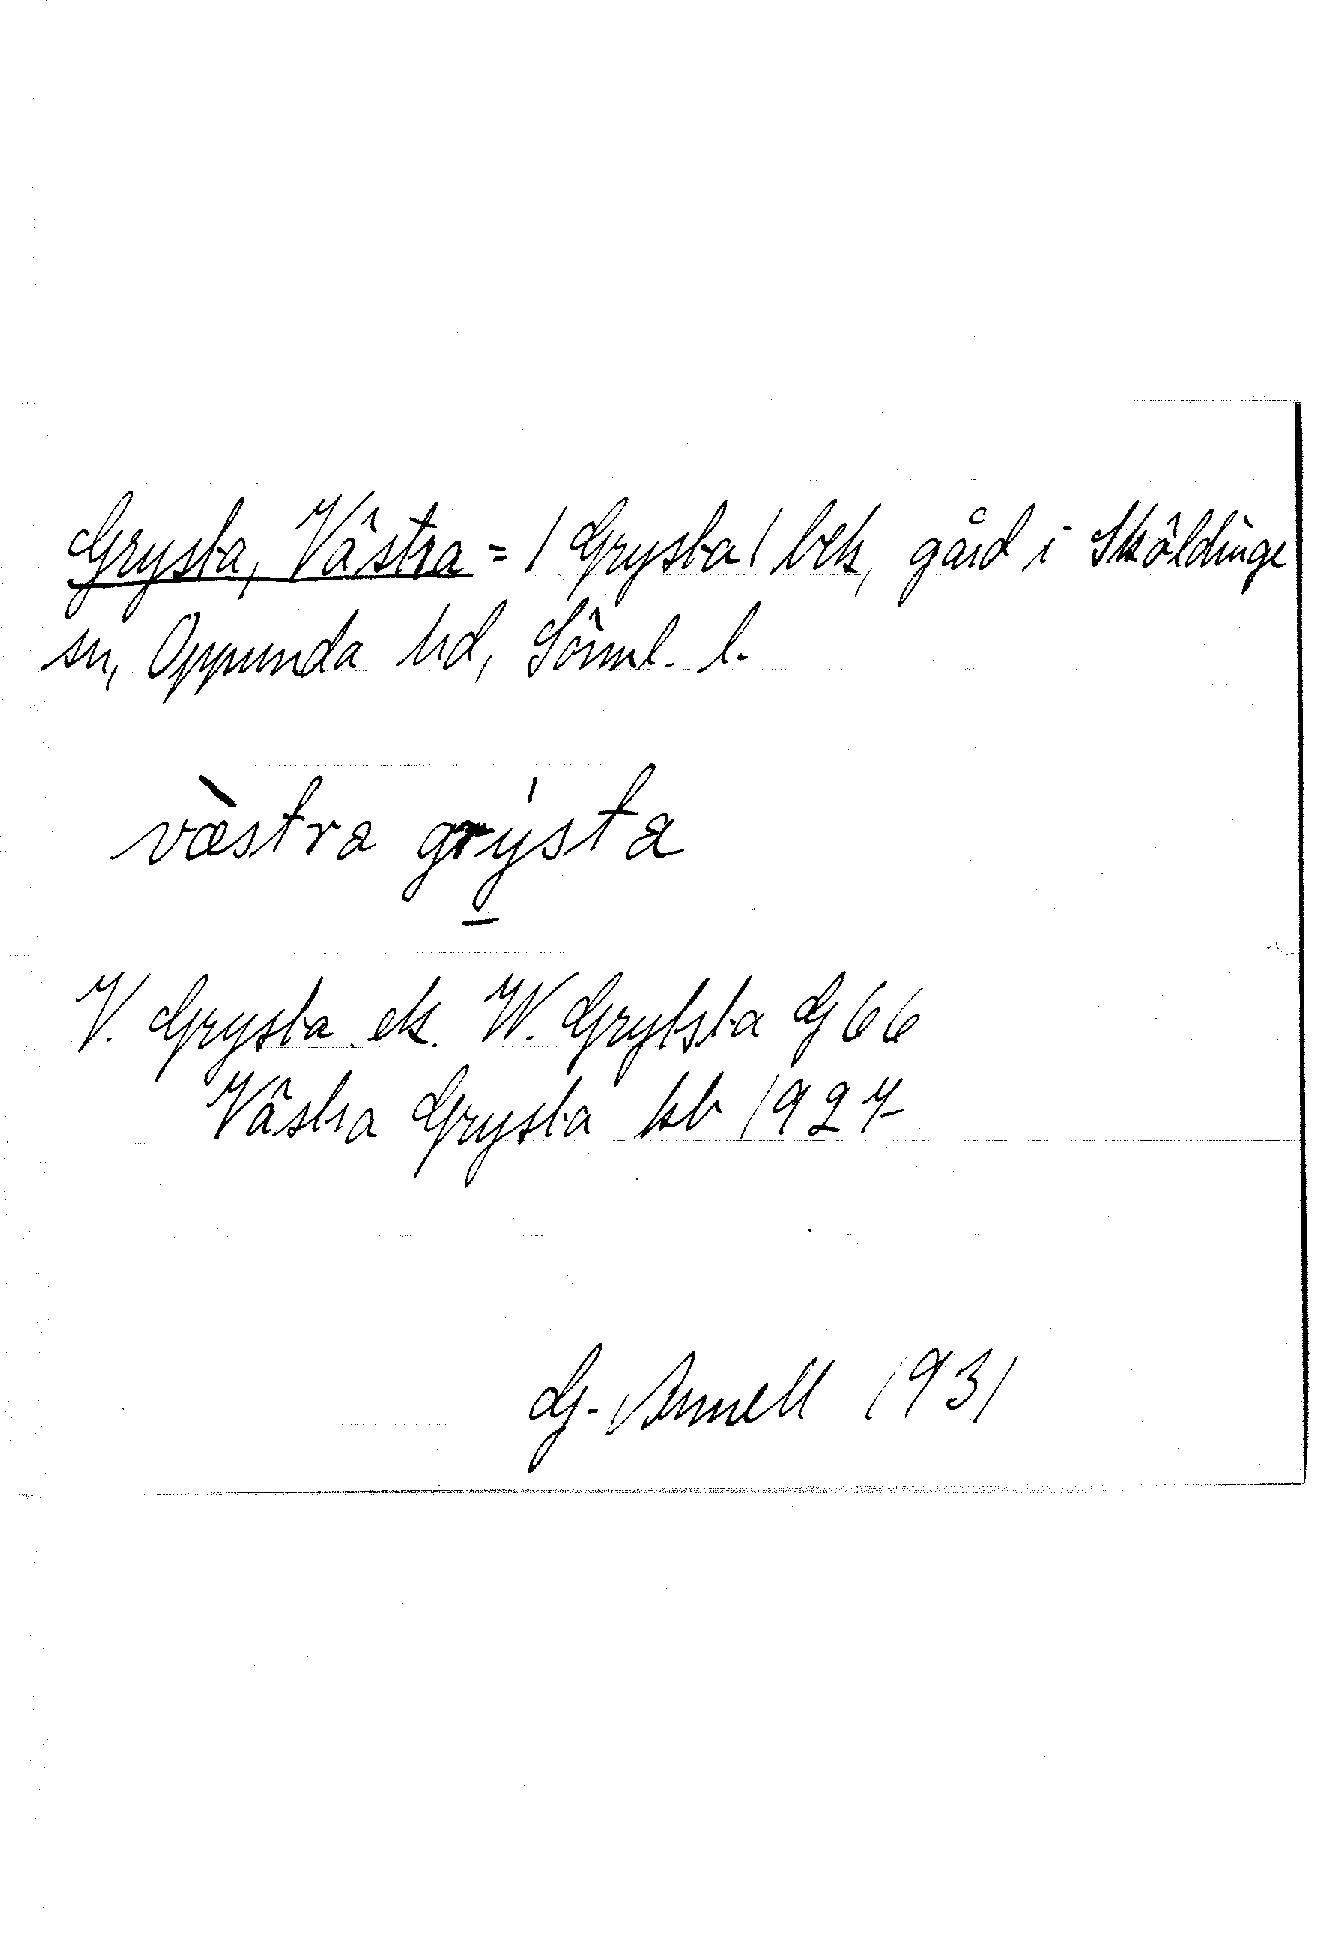 Grysta, Västra = / Grysta / bek, gård i Sköldinge
sn, Oppunda hd, Söml. l.
væ̀stra grýsta
V. Grysta ek. W. Grytsta G 66
Västra Grysta kb 1927
G. Annell 1931